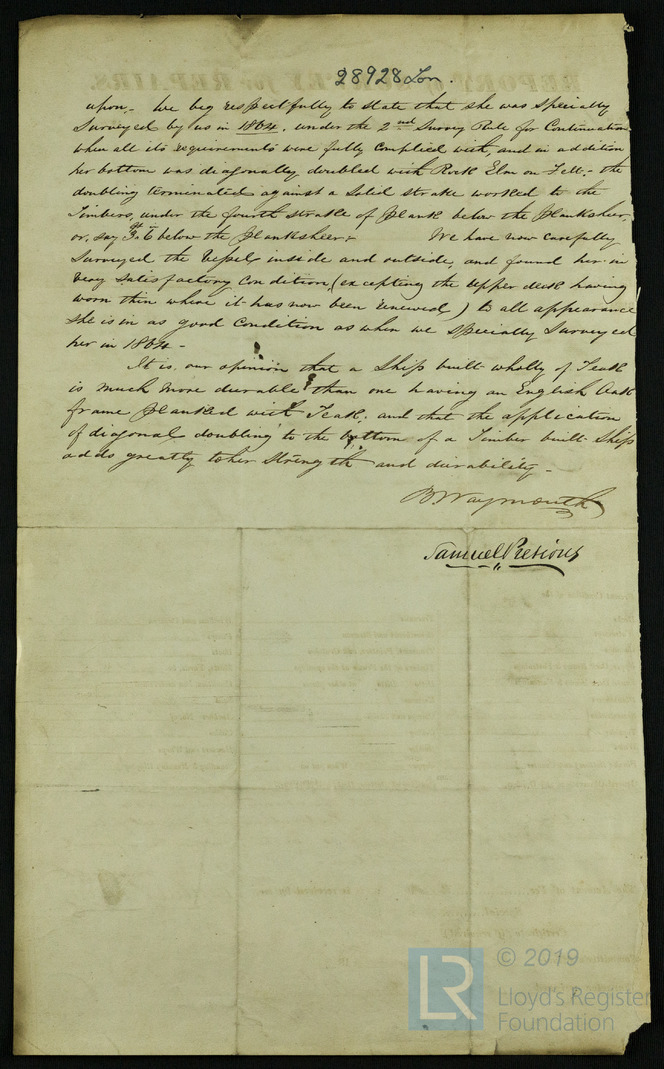 28928 Lon.
upon,- We beg respectfully to state that she was specially
Surveyed by us in 1864, under the 2nd Survey Rule for Continuation
when all its requirements were fully complied with, and in addition
her bottom was diagonally doubled with Rock Elm on Felt,- the
doubling terminated against a solid strake worked to the
Timbers, under the fourth strake of Plank below the Planksheer,
or, say 3ft. 6 below the Planksheer,- We have now carefully
Surveyed the Vessel inside and outside, and found her in
very satisfactory Condition, (excepting the Upper deck having
worn thin where it has now been renewed) to all appearance
she is in as good Condition as when we specially Surveyed
her in 1864 -
It is our opinion that a Ship built wholly of Teak
is much more durable than one having an English Oak
frame planked with Teak, and that the application
of diagonal doubling to the bottom of a Timber built Ship
adds greatly to her strength and durability -
B. Waymouth
Samuel Pretious
LR © 2019
Lloyd's Register
Foundation